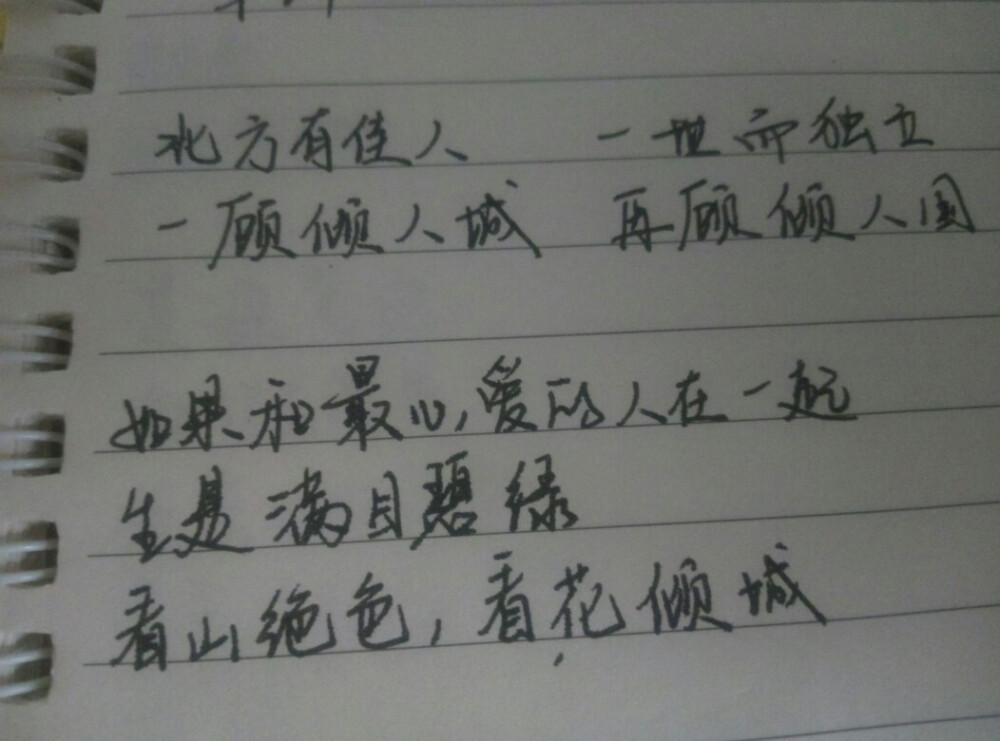 北方有佳人 一世而独立
一顾倾人城 再顾倾人国
如果和最心爱的人在一起
生是满目碧绿
看山绝色,看花倾城